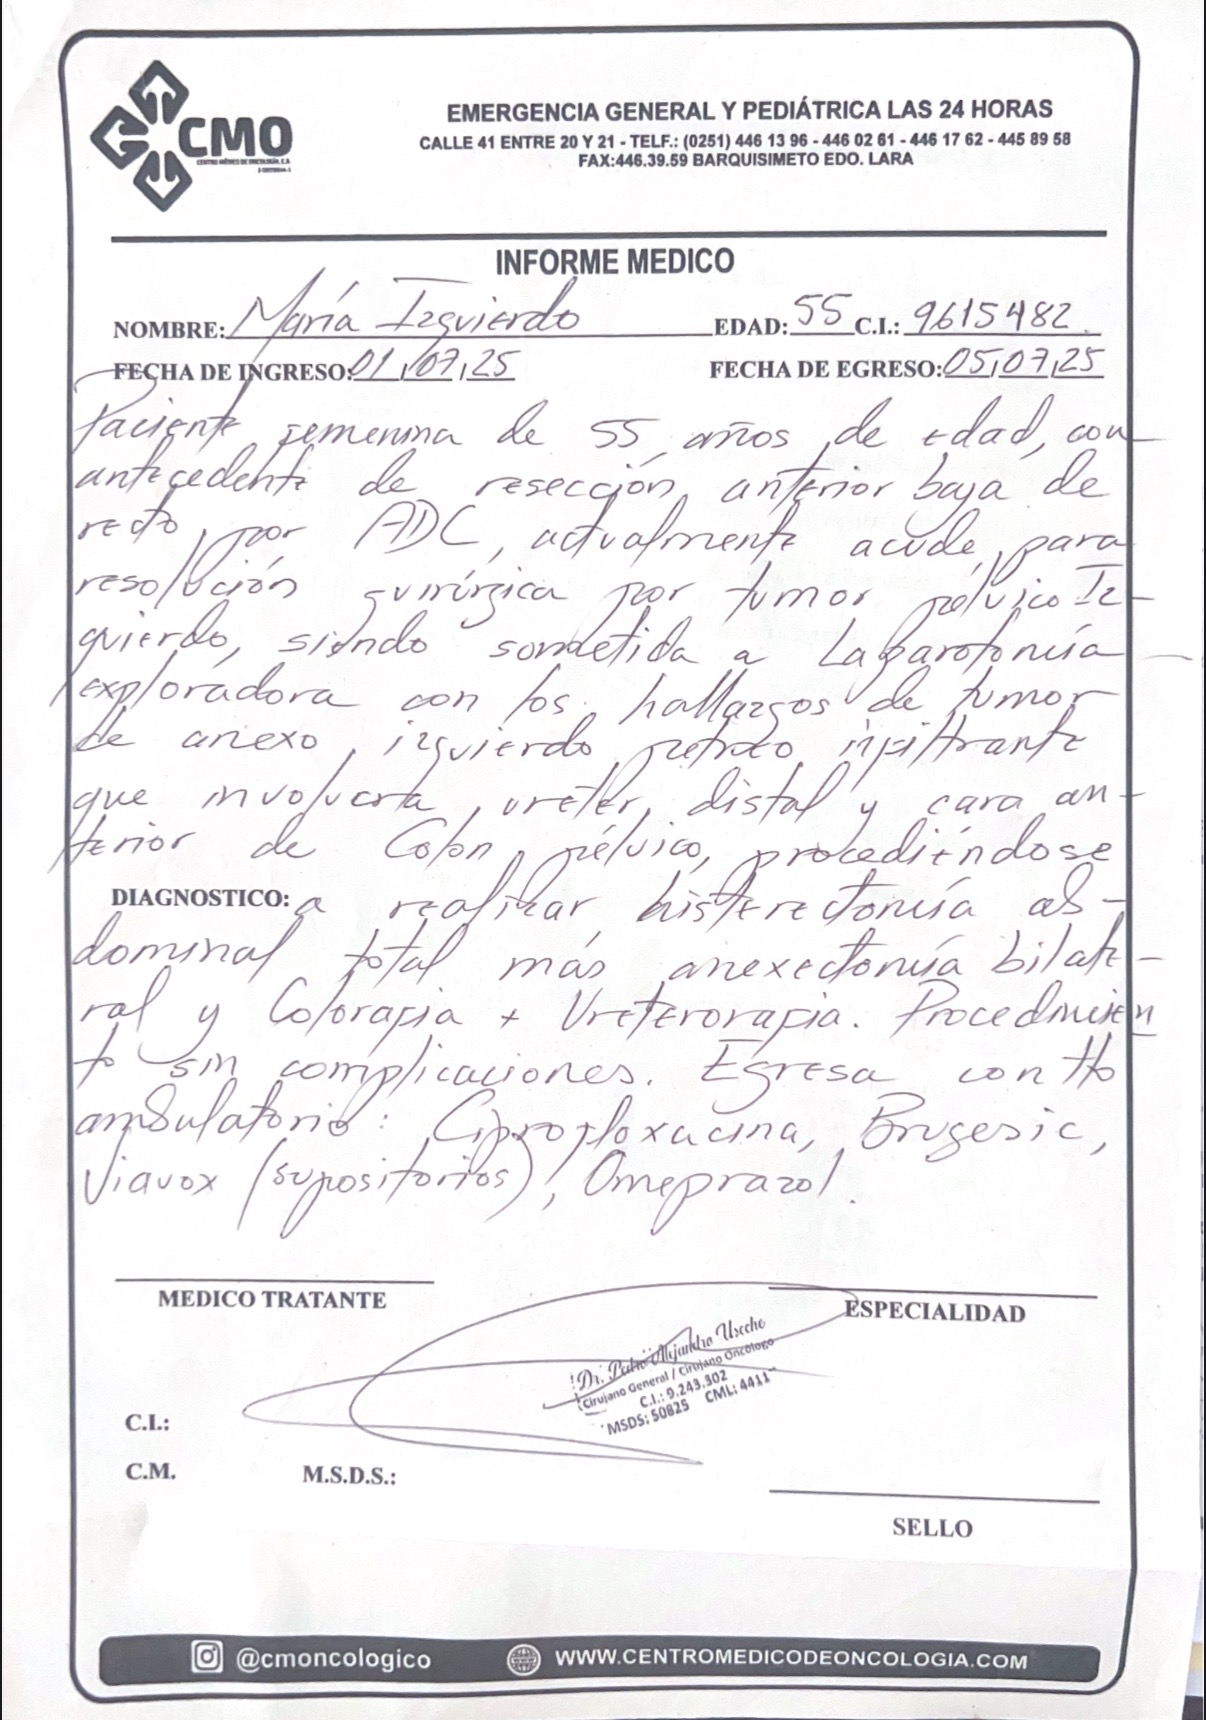 CMO
CENTRO MÉDICO DE ONCOLOGÍA, C.A.
EMERGENCIA GENERAL Y PEDIÁTRICA LAS 24 HORAS
CALLE 41 ENTRE 20 Y 21 - TELF.: (0251) 446 13 96 - 446 02 61 - 446 17 62 - 445 89 58
FAX:446.39.59 BARQUISIMETO EDO. LARA
INFORME MEDICO
NOMBRE: María Izquierdo EDAD: 55 C.I.: 9615482
FECHA DE INGRESO: 01,07,25 FECHA DE EGRESO: 05,07,25
Paciente femenina de 55 años de edad, con
antecedente de resección anterior baja de
recto por ADC, actualmente acude para
resolución quirúrgica por tumor pélvico Iz-
quierdo, siendo sometida a Laparotomía
exploradora con los hallazgos de tumor
de anexo izquierdo pétreo infiltrante
que involucra ureter distal y cara an-
terior de Colon pélvico, procediéndose
DIAGNOSTICO: a realizar histerectomía ab-
dominal total más anexectomía bilate-
ral y Colorafia + Ureterorafia. Procedimien
to sin complicaciones. Egresa con tto
ambulatorio: Ciprofloxacina, Brugesic,
Viavox (supositorios), Omeprazol.
MEDICO TRATANTE
ESPECIALIDAD
Dr. Pedro Alejandro Useche
Cirujano General / Cirujano Oncólogo
C.I.: 9.243.302
MSDS: 50825 CML: 4411
C.I.:
C.M. M.S.D.S.:
SELLO
@cmoncologico WWW.CENTROMEDICODEONCOLOGIA.COM